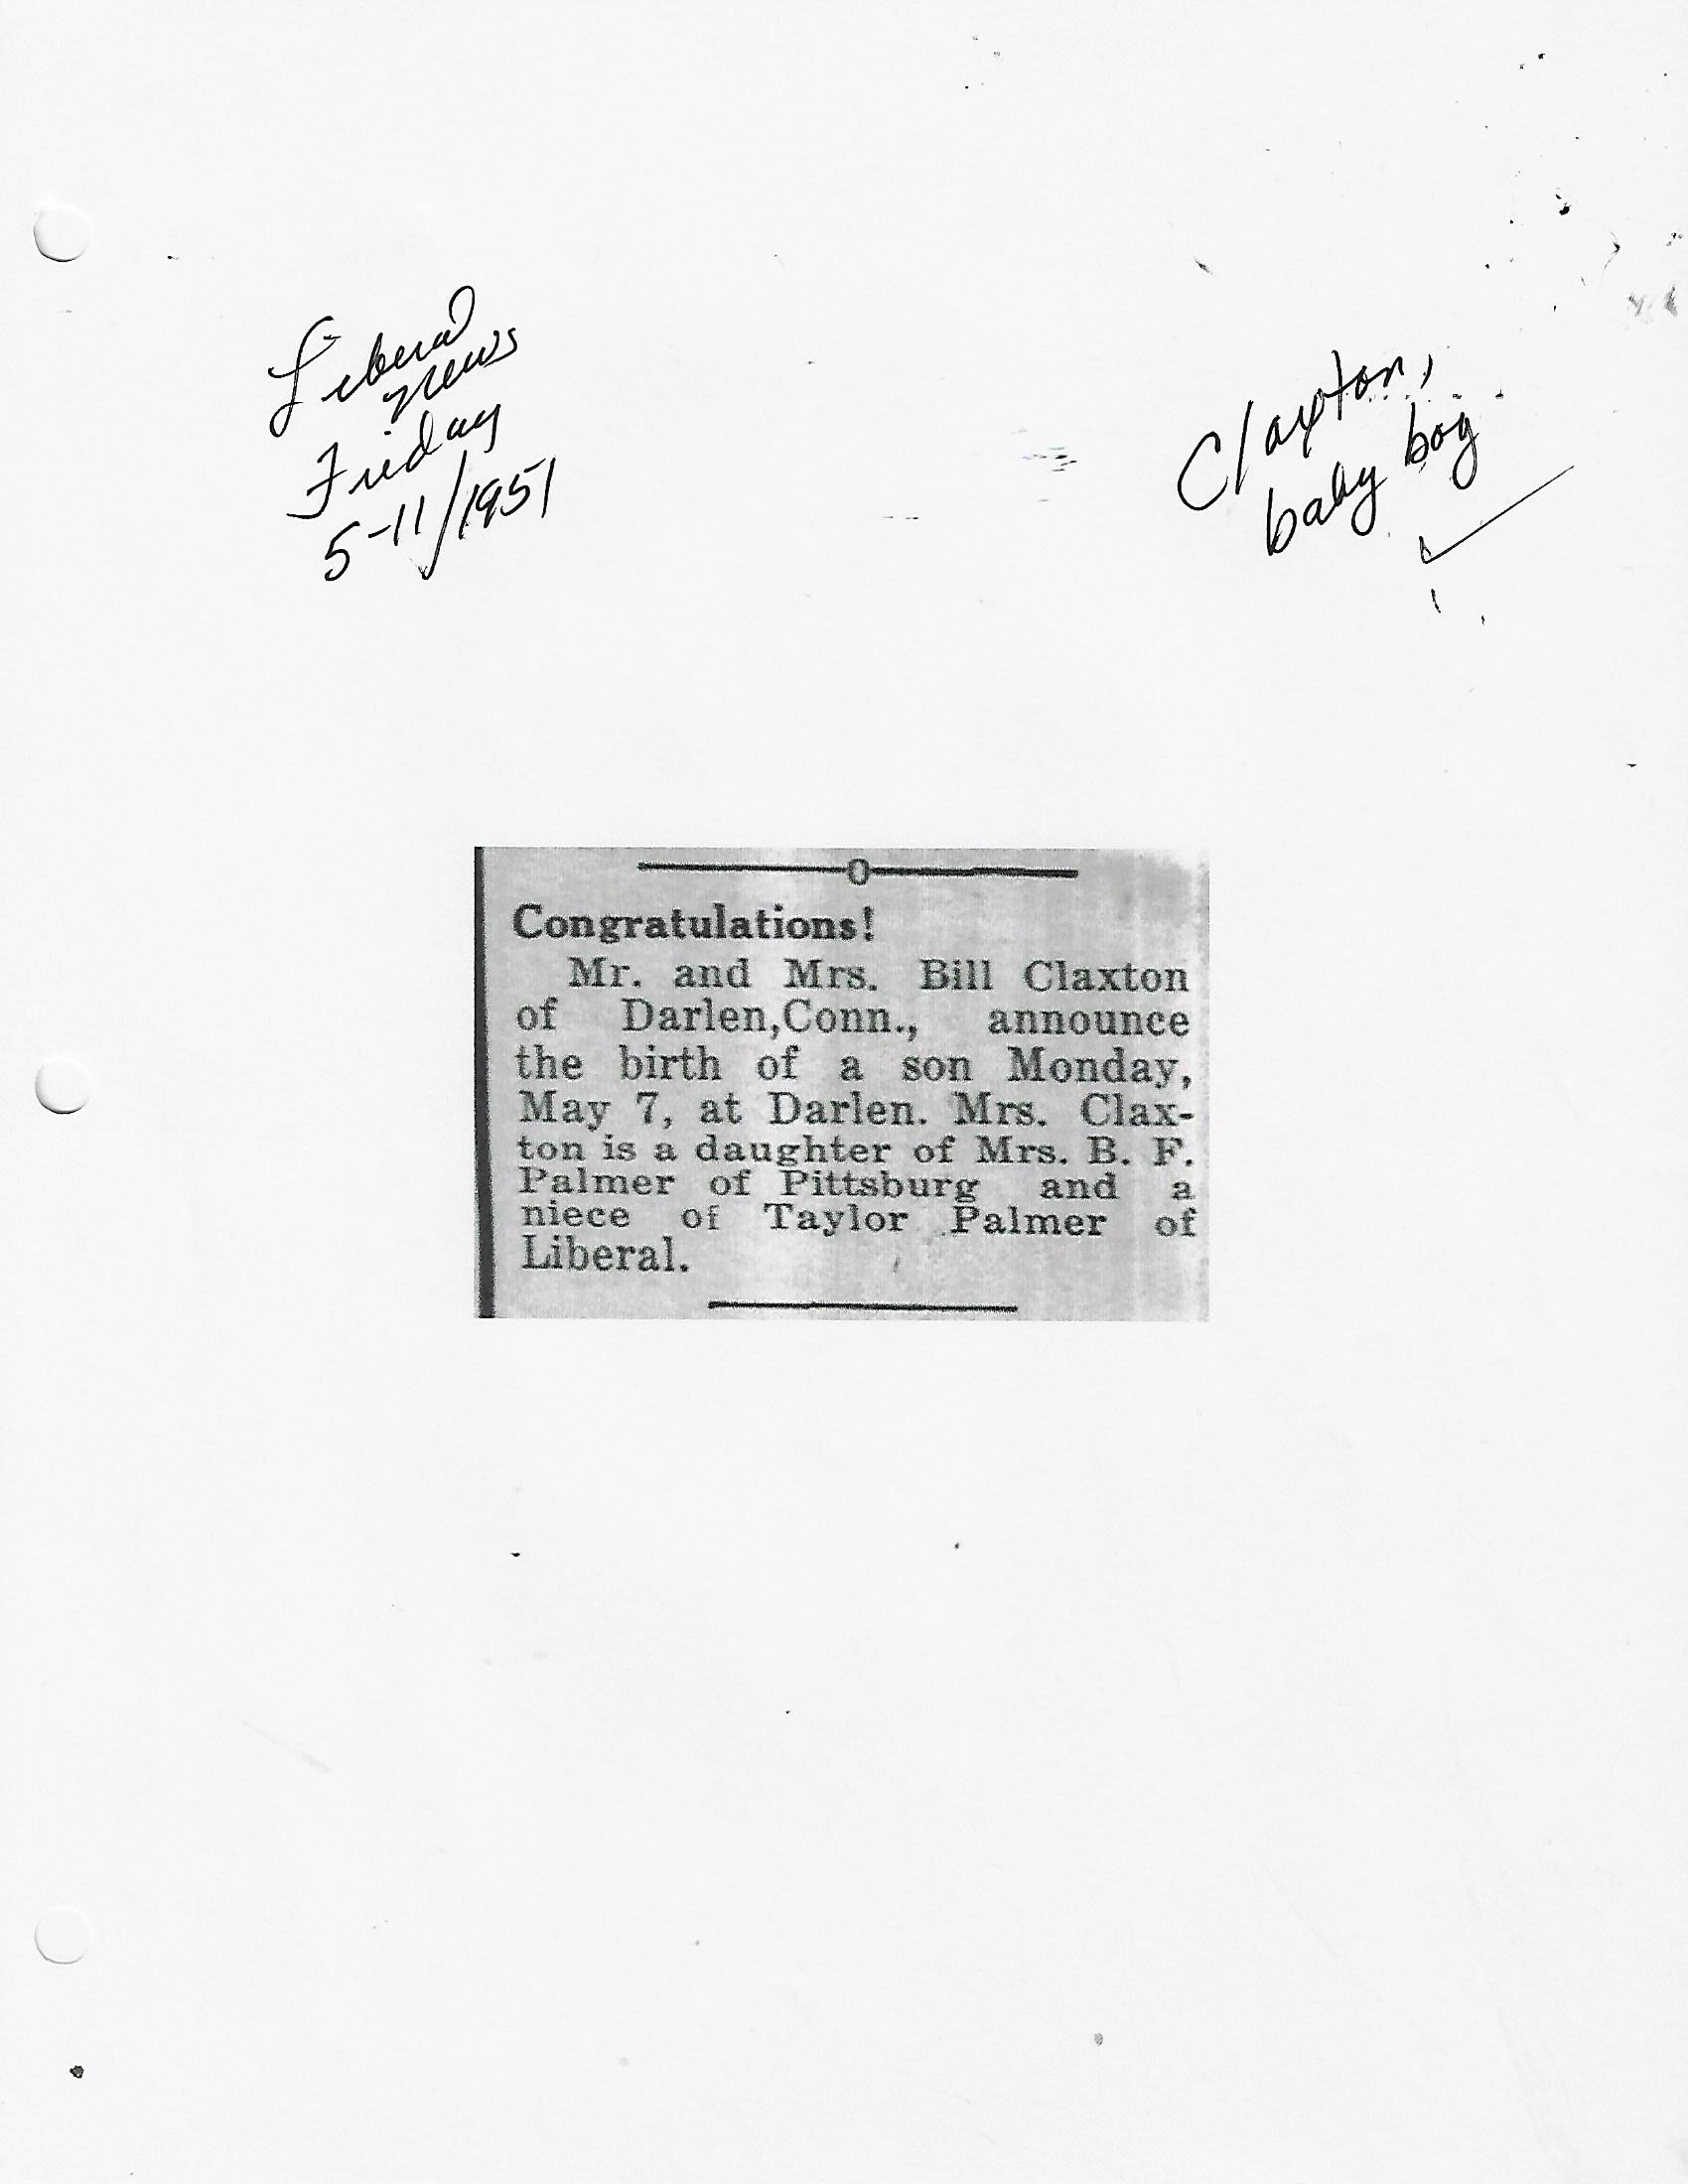 Liberal
News
Friday
5-11/1951
Claxton,
baby boy
Congratulations!
Mr. and Mrs. Bill Claxton
of Darlen,Conn., announce
the birth of a son Monday,
May 7, at Darlen. Mrs. Clax-
ton is a daughter of Mrs. B. F.
Palmer of Pittsburg and a
niece of Taylor Palmer of
Liberal.